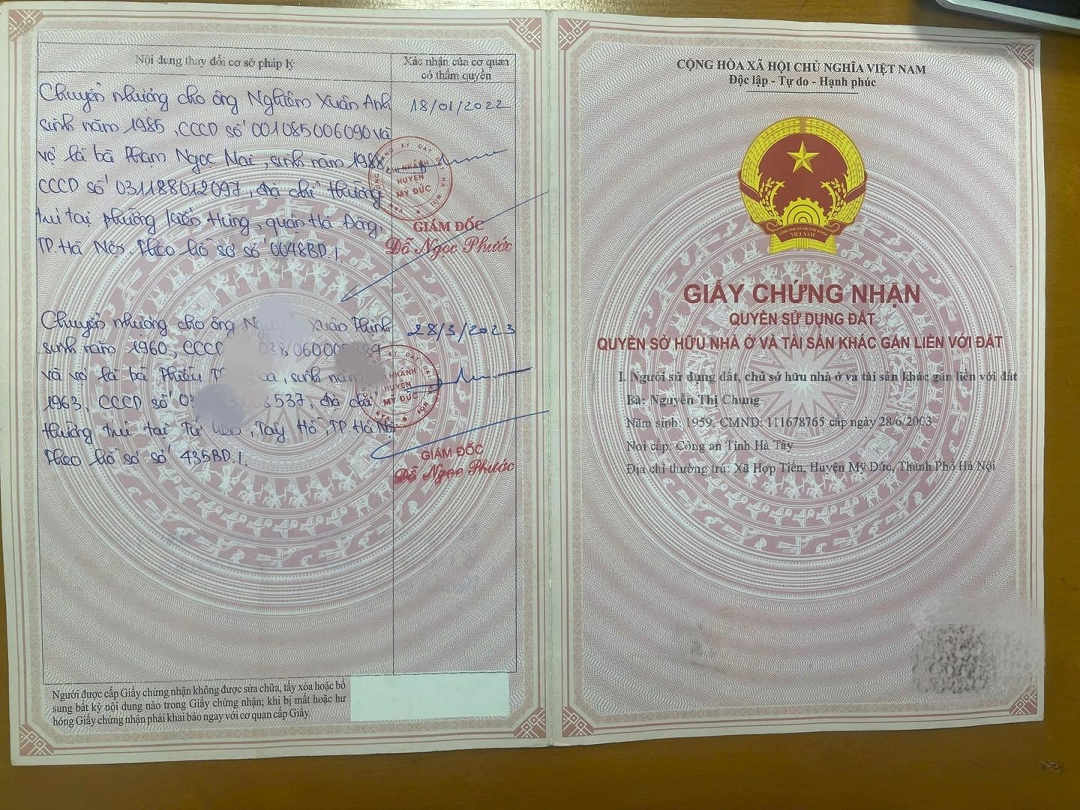 Nội dung thay đổi cơ sở pháp lý
Xác nhận của cơ quan
có thẩm quyền
Chuyển nhượng cho ông Nghiêm Xuân Anh
sinh năm 1985, CCCD số 001085006090 và
vợ là bà Phạm Ngọc Mai, sinh năm 1988
CCCD số 031188012097, địa chỉ thường
trú tại phường Kiến Hưng, quận Hà Đông,
TP. Hà Nội. Theo hồ sơ số 0048BD.1.
18/01/2022
CHI NHÁNH
HUYỆN
MỸ ĐỨC
GIÁM ĐỐC
Đỗ Ngọc Phước
Chuyển nhượng cho ông Xuân
sinh năm 1960, CCCD
và vợ là bà sinh năm
1963, CCCD số 537, địa chỉ
thường trú tại Tây Hồ, TP Hà Nội
Theo hồ sơ số 435BD.1.
28/3/2023
CHI NHÁNH
HUYỆN
MỸ ĐỨC
GIÁM ĐỐC
Đỗ Ngọc Phước
Người được cấp Giấy chứng nhận không được sửa chữa, tẩy xóa hoặc bổ
sung bất kỳ nội dung nào trong Giấy chứng nhận; khi bị mất hoặc hư
hỏng Giấy chứng nhận phải khai báo ngay với cơ quan cấp Giấy.
CỘNG HÒA XÃ HỘI CHỦ NGHĨA VIỆT NAM
Độc lập - Tự do - Hạnh phúc
VIỆT NAM
GIẤY CHỨNG NHẬN
QUYỀN SỬ DỤNG ĐẤT
QUYỀN SỞ HỮU NHÀ Ở VÀ TÀI SẢN KHÁC GẮN LIỀN VỚI ĐẤT
I. Người sử dụng đất, chủ sở hữu nhà ở và tài sản khác gắn liền với đất
Bà: Nguyễn Thị Chung
Năm sinh: 1959, CMND: 111678765 cấp ngày 28/6/2003
Nơi cấp: Công an Tỉnh Hà Tây
Địa chỉ thường trú: Xã Hợp Tiến, Huyện Mỹ Đức, Thành Phố Hà Nội